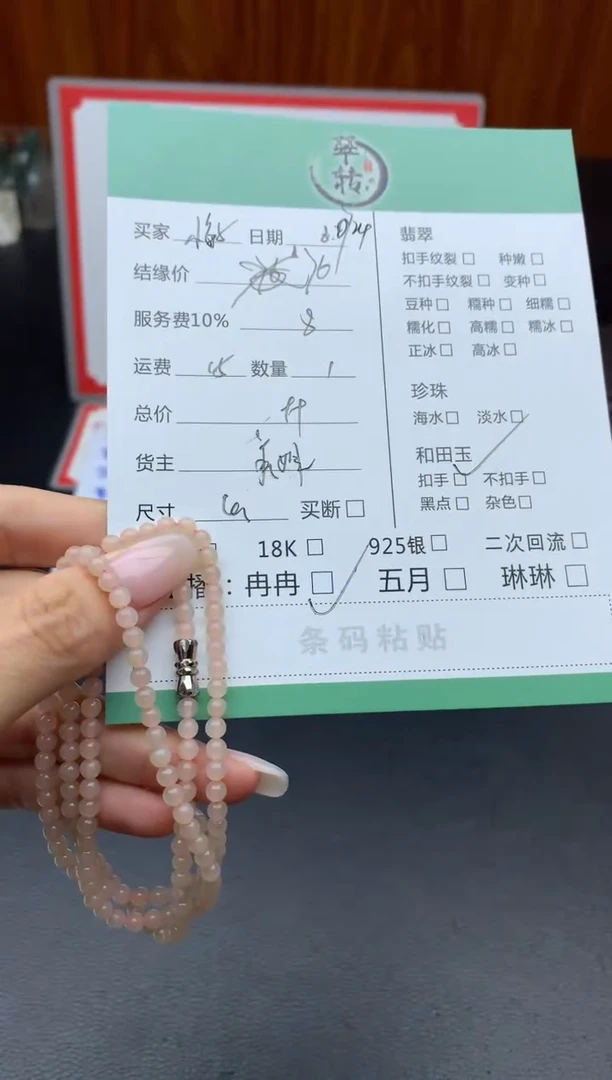 翠
转
买家 日期
结缘价
服务费10% 8
运费 数量 1
总价
货主
尺寸 买断
翡翠
扣手纹裂 种嫩
不扣手纹裂 变种
豆种 糯种 细糯
糯化 高糯 糯冰
正冰 高冰
珍珠
海水 淡水
和田玉
扣手 不扣手
黑点 杂色
18K 925银 二次回流
播：冉冉 五月 琳琳
条码粘贴